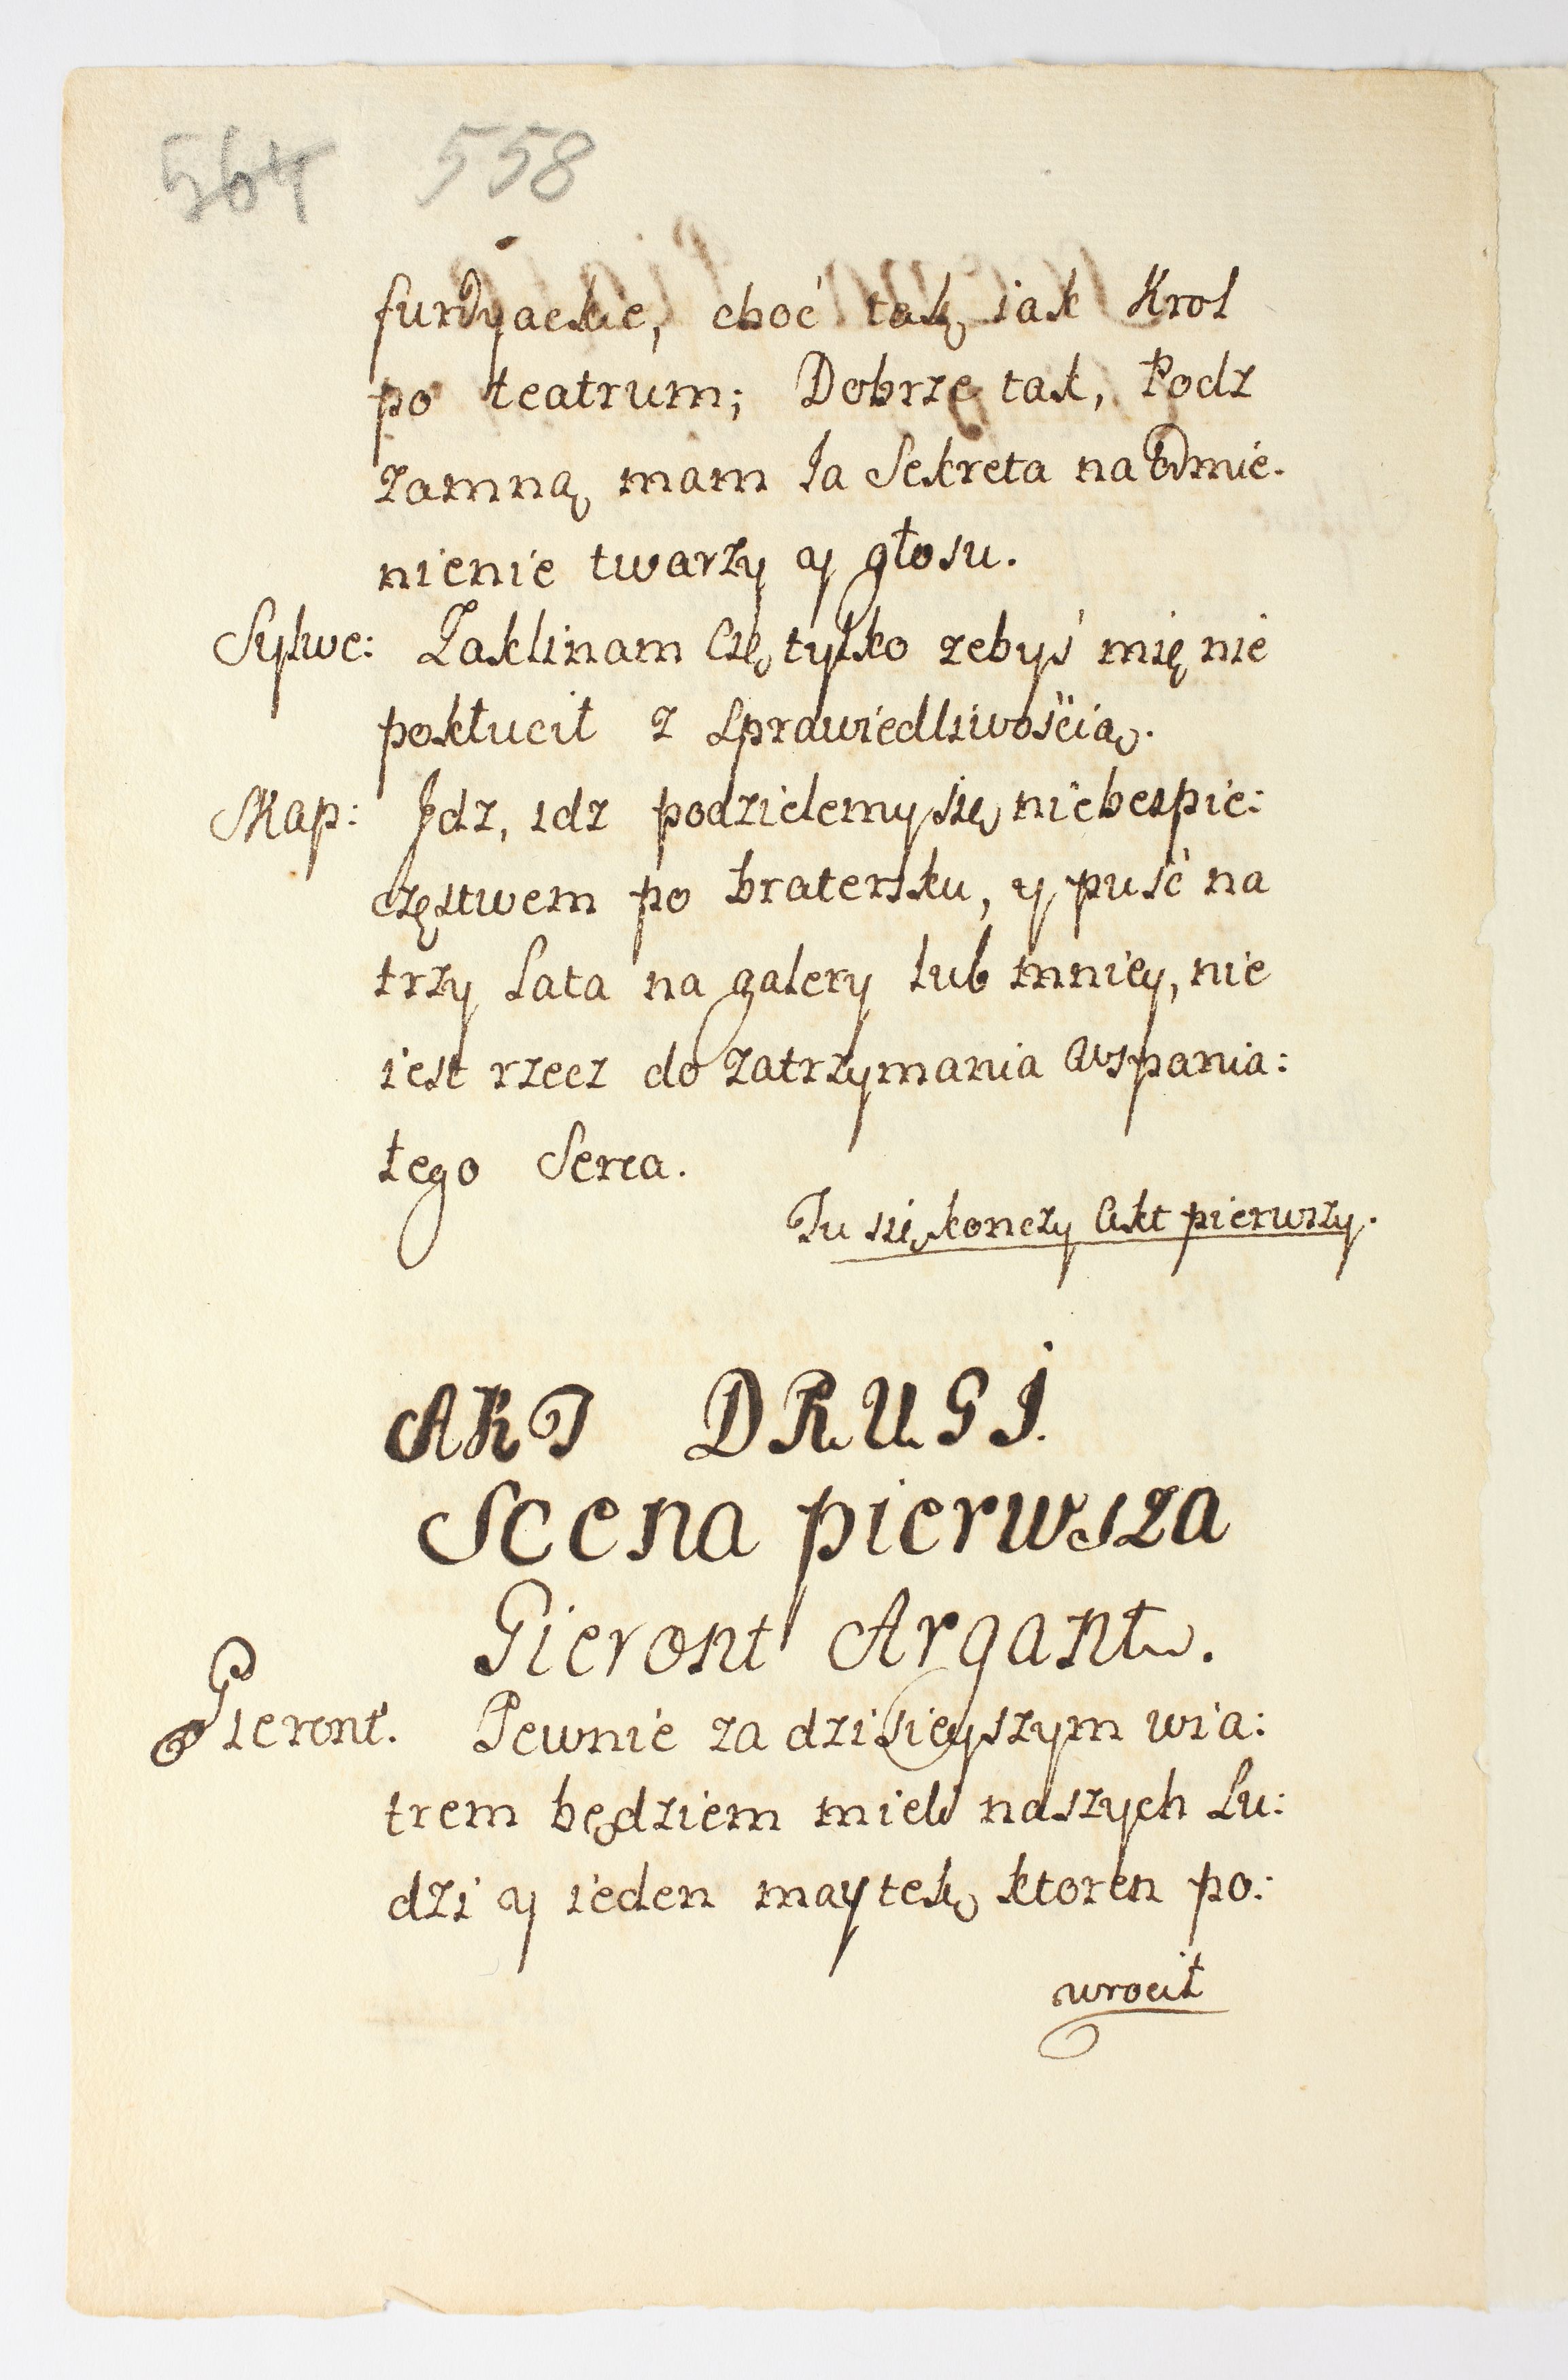 564 558
furdyackie, choć tak, iak Krol
po teatrum; Dobrze tak, Podz
zamną, mam Ja Sekreta na Odmie-
nienie twarzy y głosu.
Sylwe: Zaklinam Cię, tylko zebyś mię nie
pokłucił z Sprawiedliwością.
Skap: Jdz, idz podzielemy się niebespie:
częstwem po bratersku, y puść na
trzy Lata na galery lub mniey, nie
iest rzecz do zatrzymania Wspania:
łego Serca.
Tu się konczy Akt pierwszy.
AKT DRUGI
Scena pierwsza
Gieront Argant.
Gieront. Pewnie za dzisieyszym wia:
trem będziem mieli naszych Lu:
dzi y ieden maytek, ktoren po:
wrocił